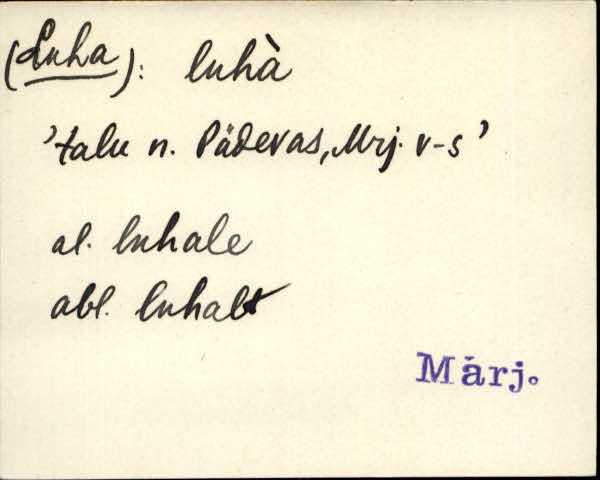 (Luha): luhà
'talu n. Pädevas, Mrj. v-s'
al. luhale
abl. luhalt
Märj.